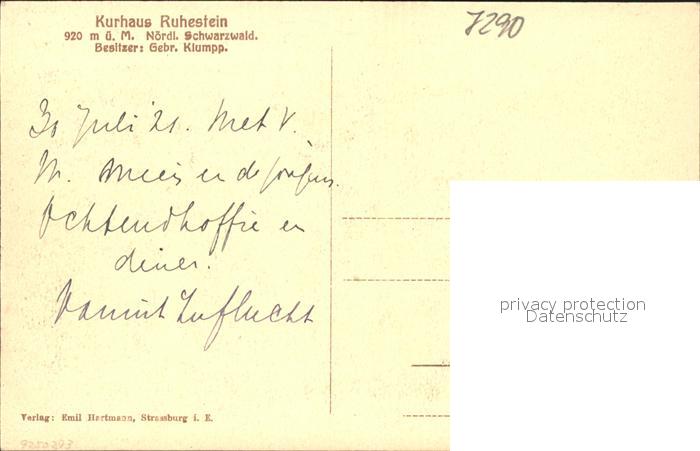 Kurhaus Ruhestein
920 m ü. M. Nördl. Schwarzwald.
Besitzer: Gebr. Klumpp.
7290
30 Juli '21. Met V.
M. en de
Ochtendkoffie en
diner.
Vanuit Zuflucht
privacy protection
Datenschutz
Verlag: Emil Hartmann, Strassburg i. E.
9250393